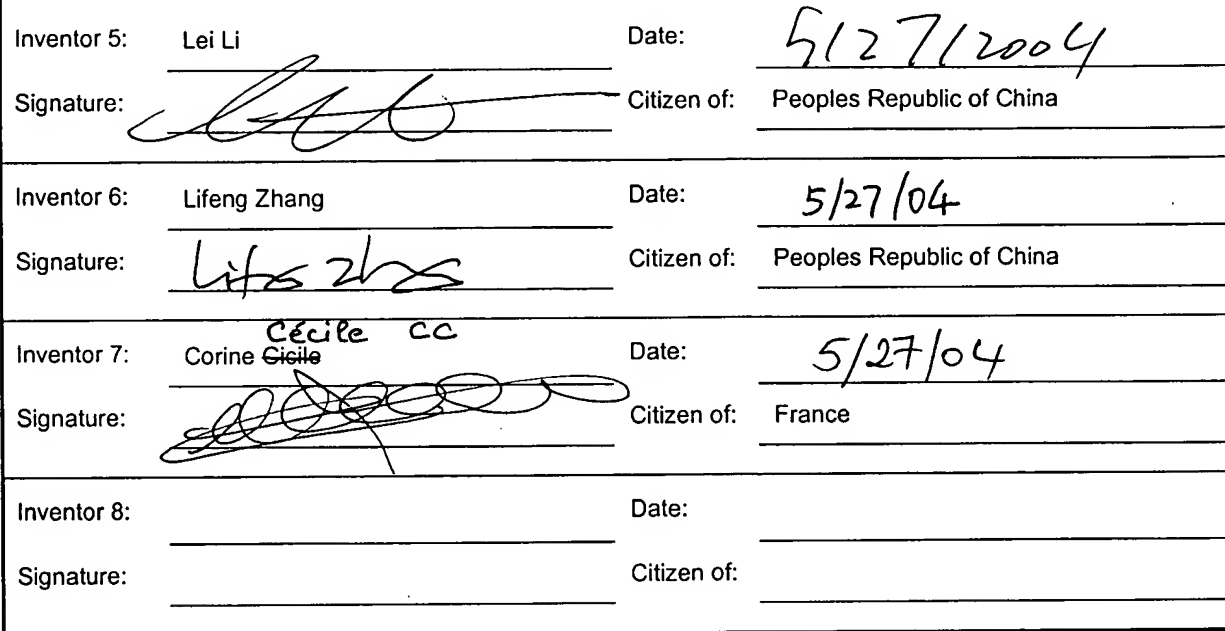 Inventor 5: Lei Li Date: 5/27/2004
Signature: Citizen of: Peoples Republic of China
Inventor 6: Lifeng Zhang Date: 5/27/04
Signature: Citizen of: Peoples Republic of China
Cécile CC
Inventor 7: Corine Cicile Date: 5/27/04
Signature: Citizen of: France
Inventor 8: Date:
Signature: Citizen of: